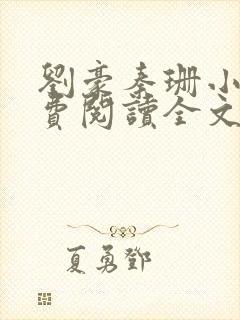 劉豪秦珊小
費閱讀全文
夏勇鄧